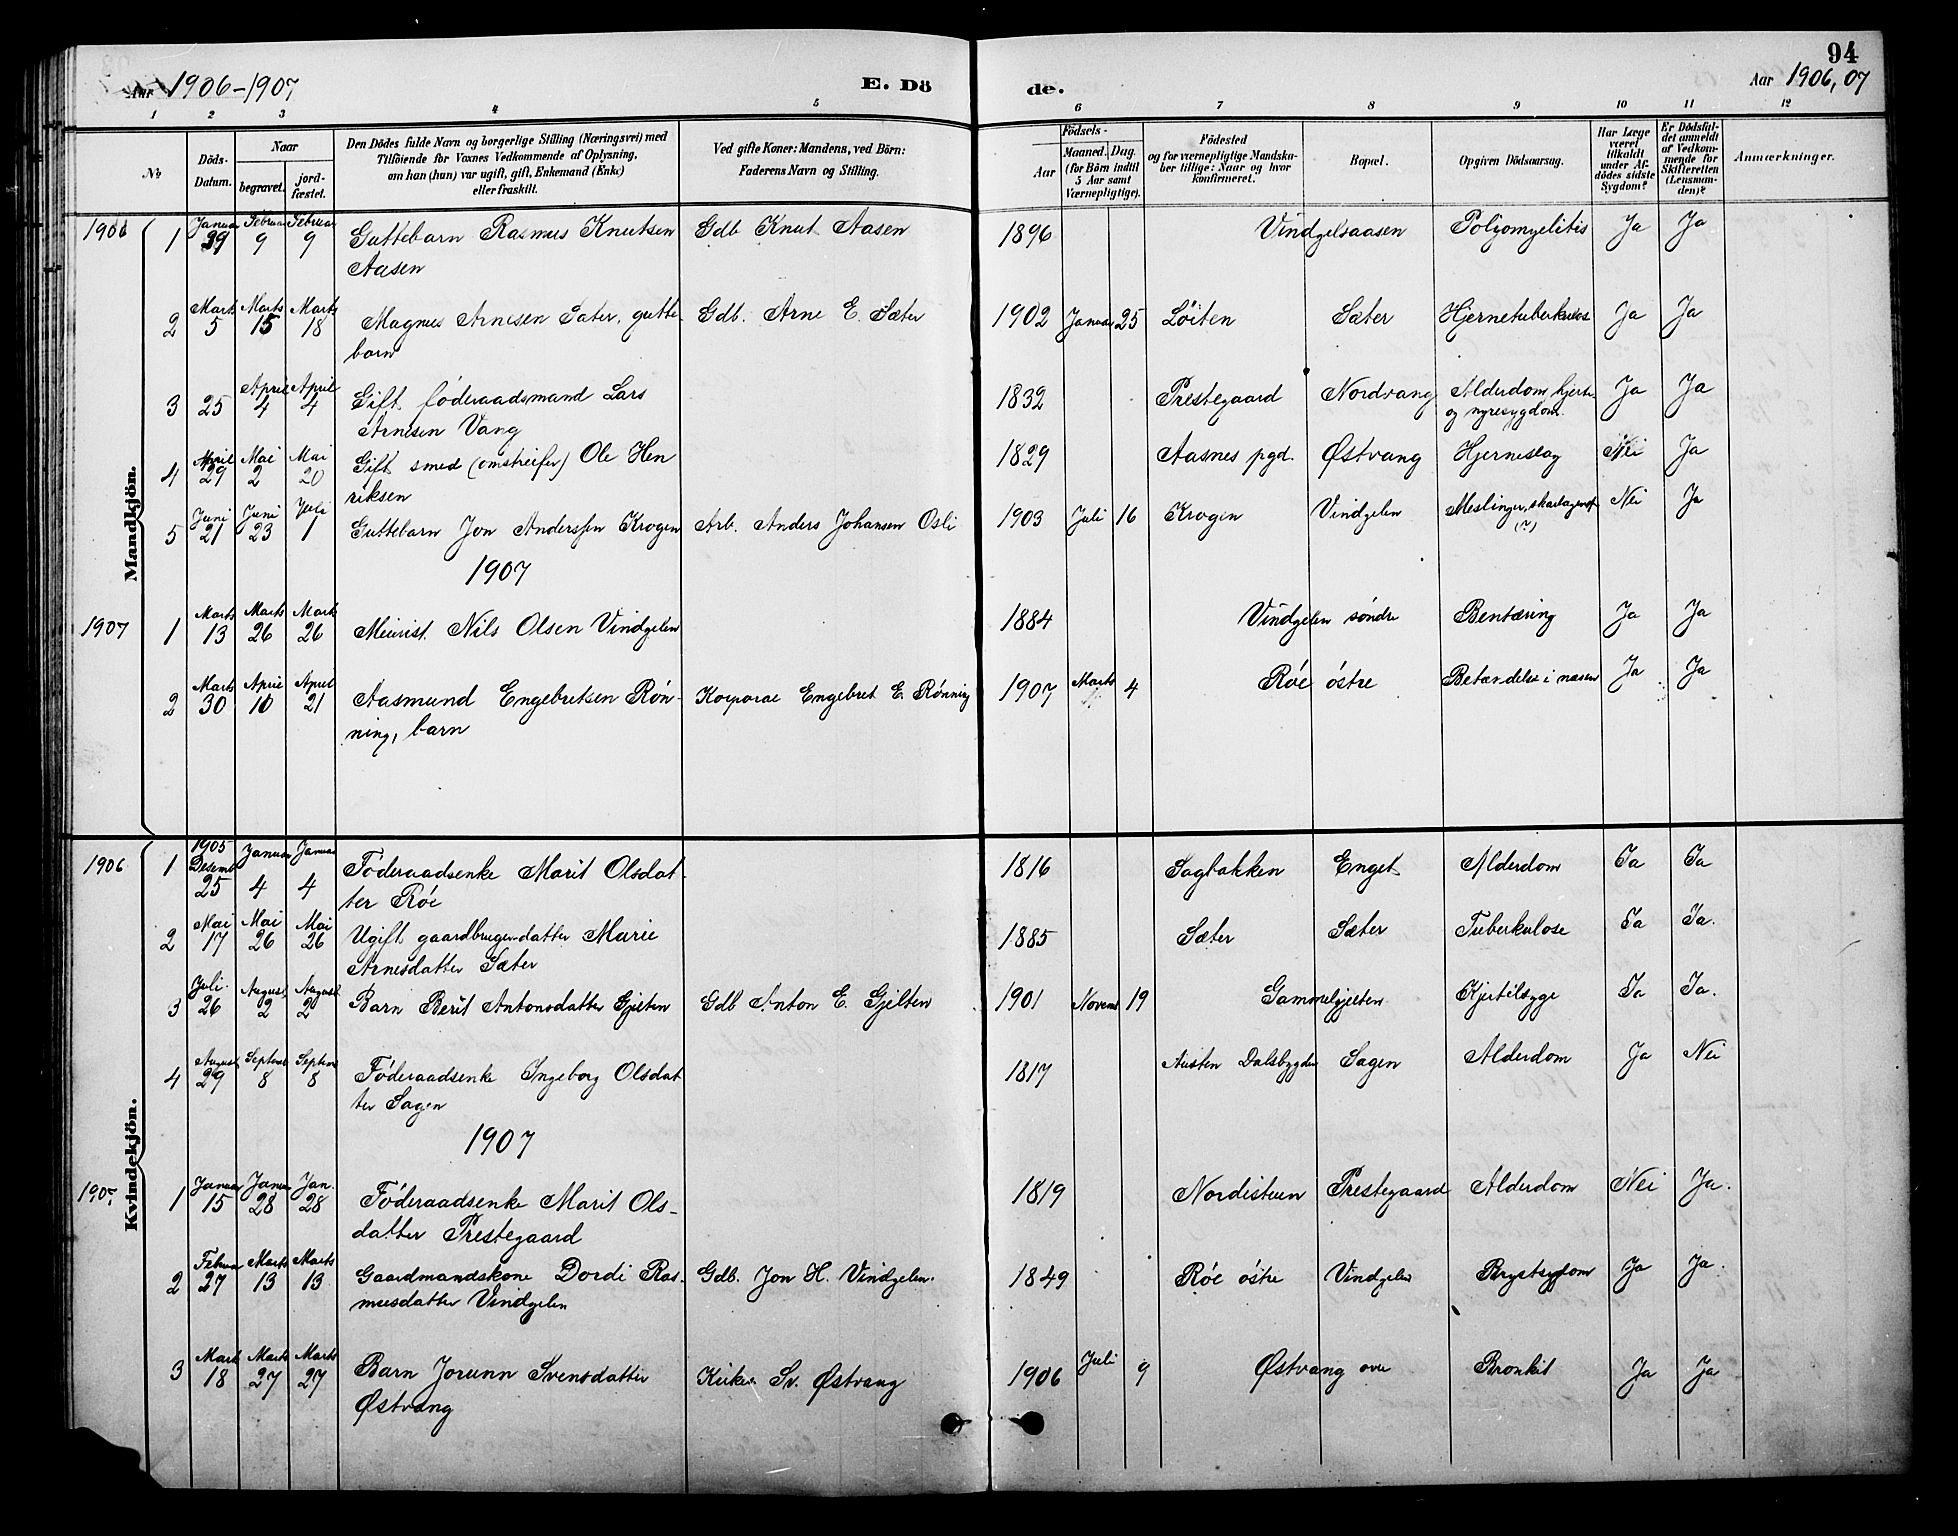 94
Aar 1906-1907 E. Dö de. Aar 1906, 07
1 2 3 4 5 6 7 8 9 10 11 12
№
Döds-
Datum.
Naar
begravet.
jord-
fæstet.
Den Dödes fulde Navn og borgerlige Stilling (Næringsvei) med
Tilföiende for Voxnes Vedkommende af Oplysning,
om han (hun) var ugift, gift, Enkemand (Enke)
eller fraskilt.
Ved gifte Koner: Mandens, ved Börn:
Faderens Navn og Stilling.
Födsels-
Aar
Maaned. Dag.
(for Börn indtil
5 Aar samt
Værnepligtige).
Födested
og for værnepligtige Mandska-
ber tillige: Naar og hvor
konfirmeret.
Bopæl.
Opgiven Dödsaarsag.
Har Læge
været
tilkaldt
under Af-
dödes sidste
Sygdom?
Er Dödsfal-
det anmeldt
af Vedkom-
mende for
Skifteretten
(Lensman-
den)?
Anmærkninger.
Mandkjön.
1906 1 Januar 29 Februar 9 Februar 9 Guttebarn Rasmus Knutsen Gdb Knut Aasen 1896 Vindgelsaasen Polyomyelitis Ja Ja
Aasen
2 Marts 5 Marts 15 Marts 18 Magnus Arnesen Sæter, gutte- Gdb. Arne E. Sæter 1902 Januar 25 Löiten Sæter Hjernetuberkulos Ja Ja
barn
3 25 April 4 April 4 Gift föderaadsmand Lars 1832 Prestegaard Nordvang Alderdom, hjerte Ja Ja
Arnesen Vang og nyresygdom.
4 April 29 Mai 2 Mai 20 Gift smed (omstreifer) Ole Hen 1829 Aasnes pgd. Østvang Hjerneslag Nei Ja
riksen
5 Juni 21 Juni 23 Juli 1 Guttebarn Jon Anderssen Krogen Arb. Anders Johansen Osli 1903 Juli 16 Krogen Vindgelen Meslinger, Nei Ja
(?)
1907
1907 1 Marts 13 Marts 26 Marts 26 Meierist Nils Olsen Vindgelen 1884 Vindgelen söndre Bentæring Ja Ja
2 Marts 30 April 10 April 21 Aasmund Engebretsen Rön- Korporal Engebret E. Rönning 1907 Marts 4 Röe östre Betændelse i næsen Ja Ja
ning, barn
Kvindekjön.
1906 1 1905 Desemb 25 Januar 4 Januar 4 Föderaadsenke Marit Olsdat- 1816 Sagbakken Enget Alderdom Ja Ja
ter Röe
2 Mai 17 Mai 26 Mai 26 Ugift gaardbrugerdatter Marie 1885 Sæter Sæter Tuberkulose Ja Ja.
Arnesdatter Sæter
3 Juli 26 August 2 August 2 Barn Berit Antonsdatter Gjelten Gdb Anton E. Gjelten 1901 Novemb 19 Gammelgjelten Kjertelsyge Ja Ja.
4 August 29 Septemb 8 Septemb 8 Föderaadsenke Ingeborg Olsdat 1817 Austen Dalsbygden Sagen Alderdom Ja Nei
ter Sagen
1907
1907 1 Januar 15 Januar 28 Jan. 28 Föderaadsenke Marit Ols- 1819 Nordisteun Prestegaard Alderdom Nei Ja.
datter Prestegaard
2 Februar 27 Marts 13 Marts 13 Gaardmandskone Dordi Ras- Gdb. Jon H. Vindgelen. 1849 Röe östre Vindgelen Brystsygdom Ja Ja.
musdatter Vindgelen
3 Marts 18 Marts 27 Marts 27 Barn Jorunn Svensdatter Sv. Østvang 1906 Juli 9 Østvang øvre Bronkit Ja Ja
Østvang